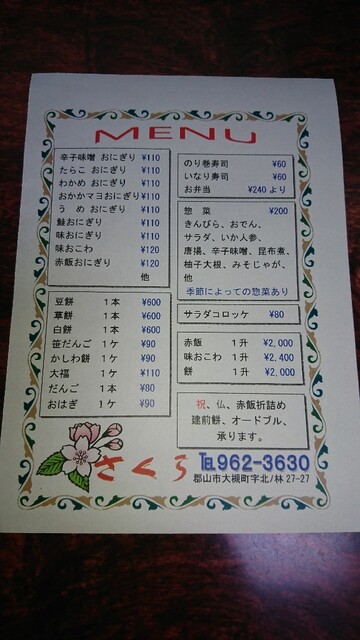 MENU
辛子味噌 おにぎり ¥110
たらこ おにぎり ¥110
わかめ おにぎり ¥110
おかかマヨおにぎり ¥110
う め おにぎり ¥110
鮭おにぎり ¥110
味おにぎり ¥110
味おこわ ¥120
赤飯おにぎり ¥120
他
豆餅 1本 ¥600
草餅 1本 ¥600
白餅 1本 ¥600
笹だんご 1ケ ¥90
かしわ餅 1ケ ¥90
大福 1ケ ¥110
だんご 1本 ¥80
おはぎ 1ケ ¥90
のり巻寿司 ¥60
いなり寿司 ¥60
お弁当 ¥240より
惣 菜 ¥200
きんぴら、おでん、
サラダ、いか人参、
唐揚、辛子味噌、昆布煮、
柚子大根、みそじゃが、
他
季節によっての惣菜あり
サラダコロッケ ¥80
赤飯 1升 ¥2,000
味おこわ 1升 ¥2,400
餅 1升 ¥2,000
祝、仏、赤飯折詰め
建前餅、オードブル、
承ります。
さくら
℡962-3630
郡山市大槻町字北ノ林27-27